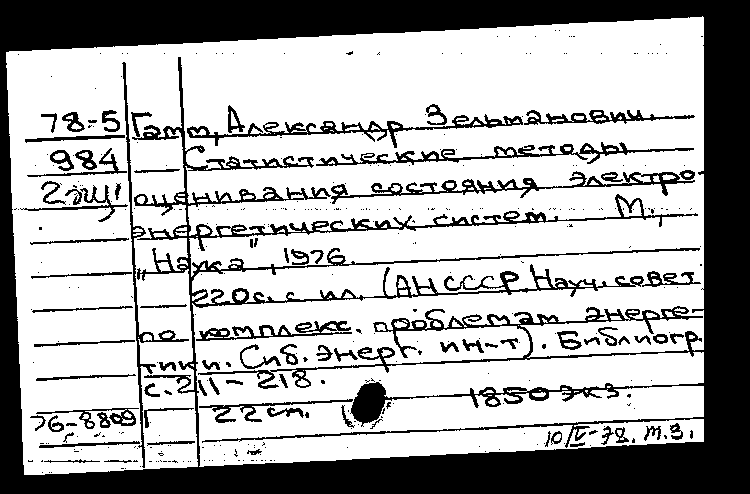 78-5 Гамм, Александр Зельманович.
984 Статистические методы
2 экз оценивания состояния электро-
энергетических систем. М.,
„Наука", 1976.
220с. с ил. (АН СССР. Науч. совет
по комплекс. проблемам энерге-
тики. Сиб. энерг. ин-т). Библиогр.
с. 211-218.
76-8809 22 см. 1850 экз.
10/V-78. т.з.